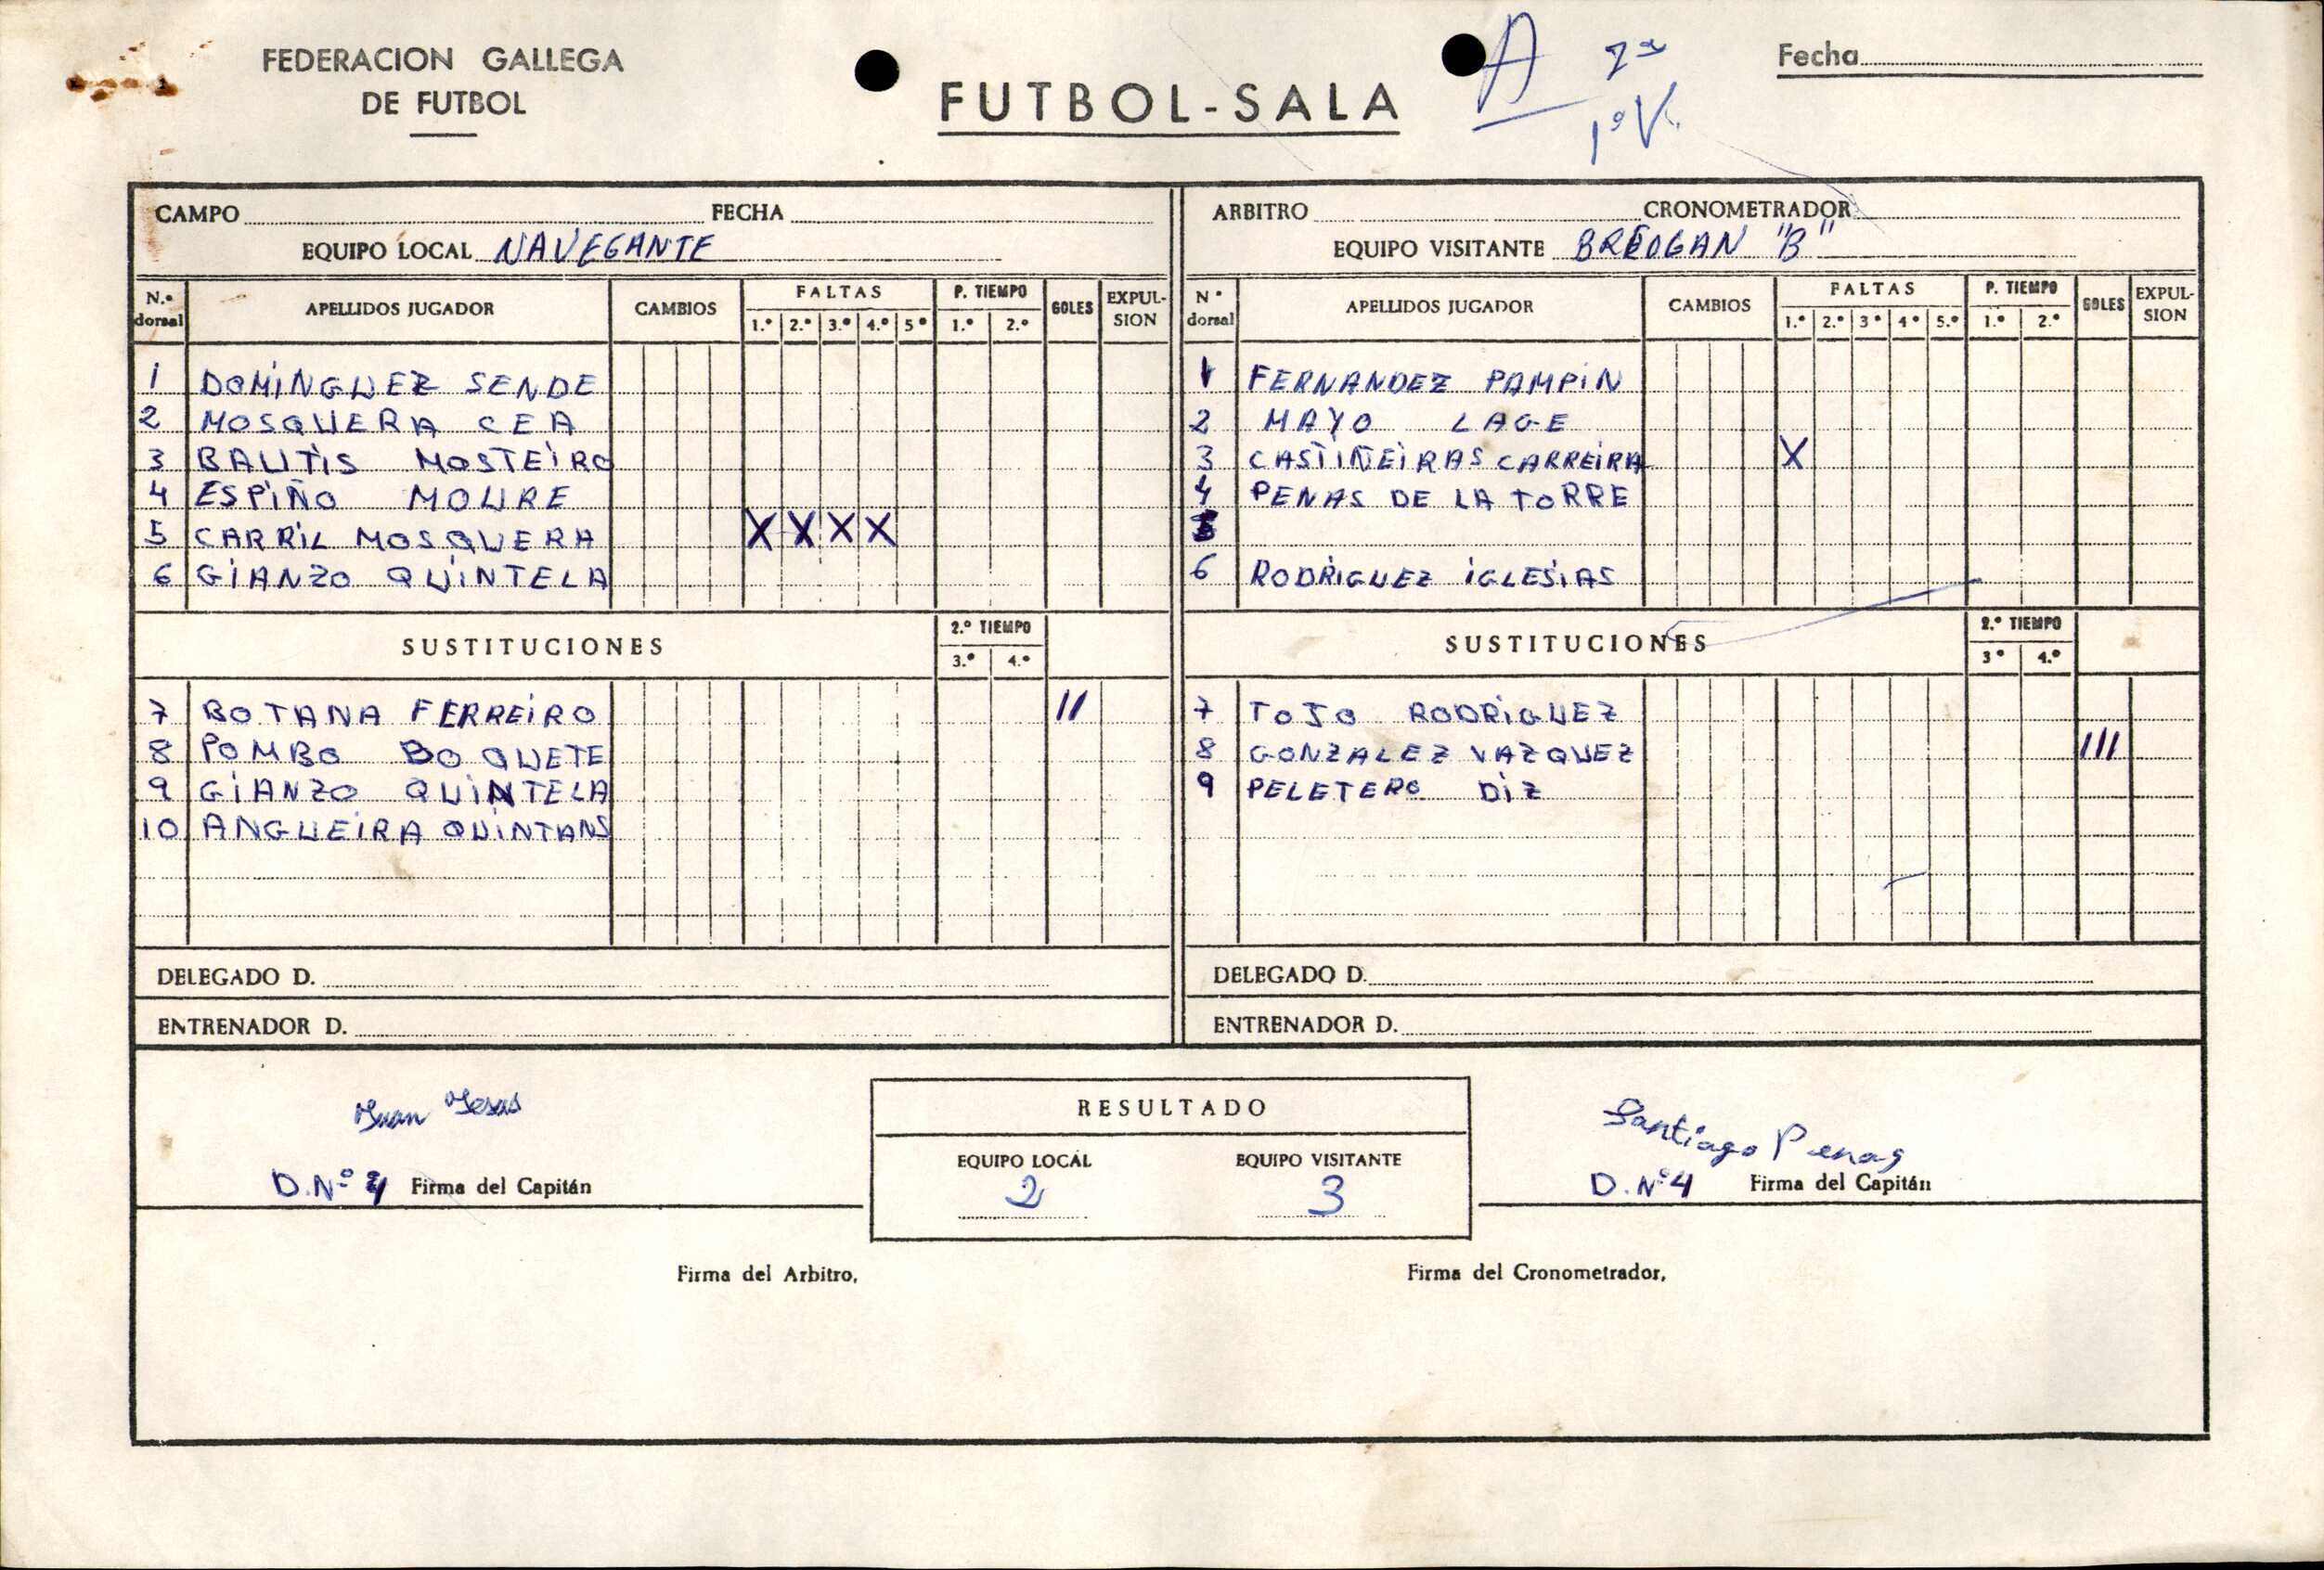 FEDERACION GALLEGA
DE FUTBOL
FUTBOL-SALA
A 7ª
1ª V.
Fecha
CAMPO FECHA
EQUIPO LOCAL NAVEGANTE
N.º dorsal APELLIDOS JUGADOR CAMBIOS FALTAS P. TIEMPO GOLES EXPUL-SION
1.º 2.º 3.º 4.º 5º 1.º 2.º
1 DOMINGUEZ SENDE
2 MOSQUERA CEA
3 BAUTIS MOSTEIRO
4 ESPIÑO MOURE
5 CARRIL MOSQUERA X X X X
6 GIANZO QUINTELA
SUSTITUCIONES 2.º TIEMPO
3.º 4.º
7 BOTANA FERREIRO II
8 POMBO BOQUETE
9 GIANZO QUINTELA
10 ANGUEIRA QUINTANS
DELEGADO D.
ENTRENADOR D.
ARBITRO CRONOMETRADOR
EQUIPO VISITANTE BREOGAN "B"
Nº dorsal APELLIDOS JUGADOR CAMBIOS FALTAS P. TIEMPO GOLES EXPUL-SION
1.º 2.º 3º 4º 5.º 1.º 2.º
1 FERNANDEZ PAMPIN
2 MAYO LAGE
3 CASTIÑEIRAS CARREIRA X
4 PENAS DE LA TORRE
5
6 RODRIGUEZ IGLESIAS
SUSTITUCIONES 2.º TIEMPO
3º 4.º
7 TOJO RODRIGUEZ
8 GONZALEZ VAZQUEZ III
9 PELETERO DIZ
DELEGADO D.
ENTRENADOR D.
Juan Jesus
D. Nº 4 Firma del Capitán
RESULTADO
EQUIPO LOCAL EQUIPO VISITANTE
2 3
Santiago Penas
D. Nº 4 Firma del Capitán
Firma del Arbitro,
Firma del Cronometrador,